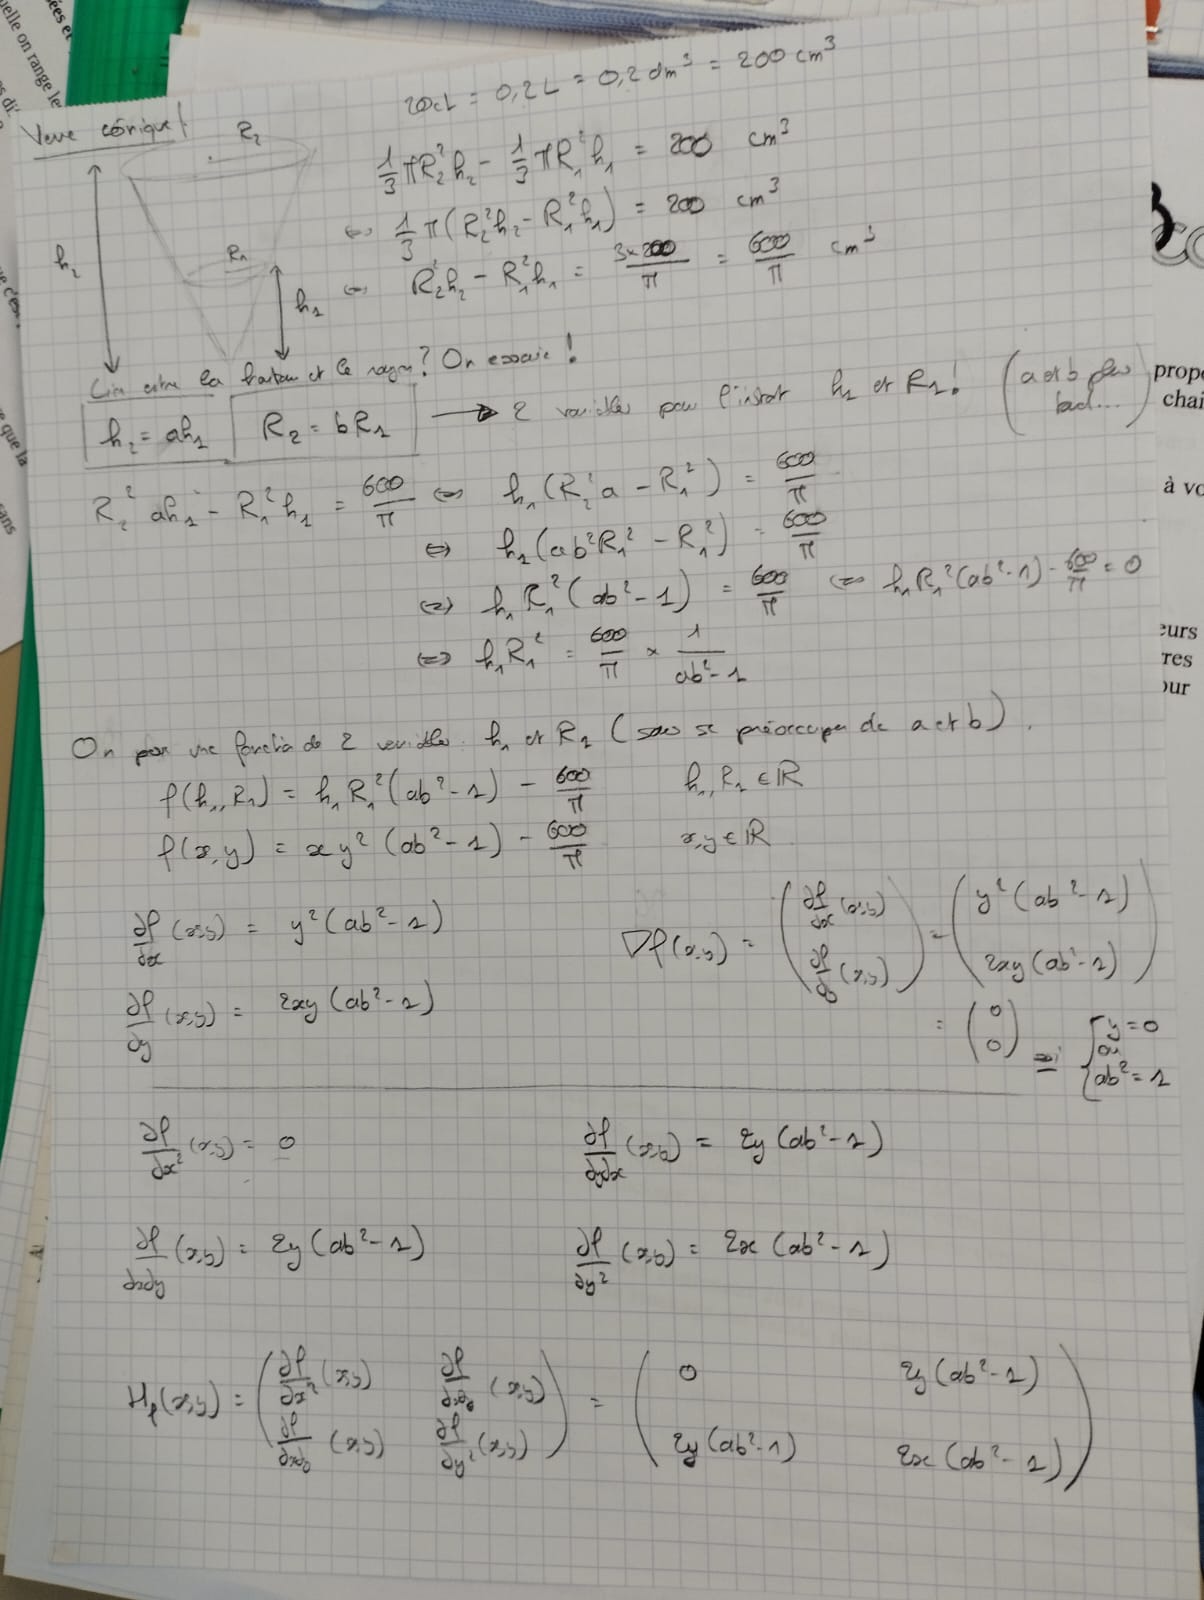 20cL = 0,2L = 0,2 dm³ = 200 cm³
Verre cônique !
R₂
h₂
R₁
h₁
1/3 πR₂²h₂ - 1/3 πR₁²h₁ = 200 cm³
⇔ 1/3 π(R₂²h₂ - R₁²h₁) = 200 cm³
⇔ R₂²h₂ - R₁²h₁ = 3×200/π = 600/π cm³
Lien entre la hauteur et le rayon ? On essaie !
h₂ = ah₁ R₂ = bR₁ → 2 variables pour l'instant h₁ et R₁ ! (a et b plus tard...)
R₂² ah₁ - R₁²h₁ = 600/π ⇔ h₁(R₂²a - R₁²) = 600/π
⇔ h₁(ab²R₁² - R₁²) = 600/π
⇔ h₁R₁²(ab²-1) = 600/π ⇔ h₁R₁²(ab²-1) - 600/π = 0
⇔ h₁R₁² = 600/π × 1/(ab²-1)
On pose une fonction de 2 variables h₁ et R₁ (sans se préoccuper de a et b).
f(h₁,R₁) = h₁R₁²(ab²-1) - 600/π h₁,R₁ ∈ ℝ
f(x,y) = xy²(ab²-1) - 600/π x,y ∈ ℝ
∂f/∂x (x,y) = y²(ab²-1)
∂f/∂y (x,y) = 2xy(ab²-1)
∇f(x,y) = (∂f/∂x (x,y) ; ∂f/∂y (x,y)) = (y²(ab²-1) ; 2xy(ab²-1))
= (0 ; 0) ssi { y=0 ou ab²=1
∂f/∂x² (x,y) = 0 ∂f/∂y∂x (x,y) = 2y(ab²-1)
∂f/∂x∂y (x,y) = 2y(ab²-1) ∂f/∂y² (x,y) = 2x(ab²-1)
H_f(x,y) = (∂f/∂x² (x,y) ∂f/∂x∂y (x,y) ; ∂f/∂x∂y (x,y) ∂f/∂y² (x,y)) = (0 2y(ab²-1) ; 2y(ab²-1) 2x(ab²-1))
elle on range le
que la
sans
propo
chai
à vo
eurs
res
our